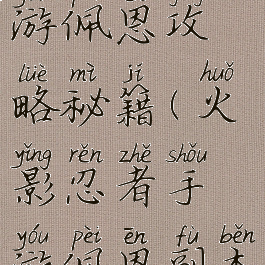 游佩恩攻
lüè mì jí huǒ
略秘籍(火
yǐng rěn zhě shǒu
影忍者手
yóu pèi ēn fù běn
游佩恩副本